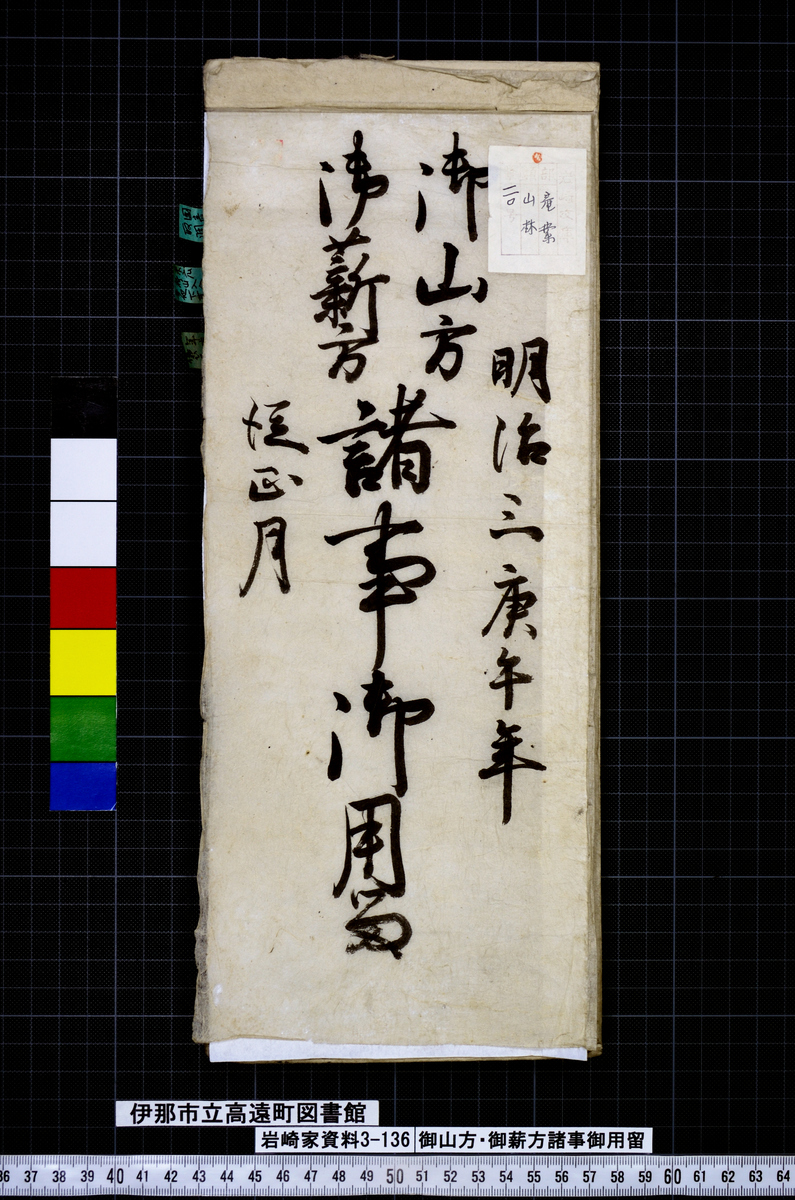 産業
山林
二〇
明治三庚午年
御山方
御薪方
諸事御用留
従正月
伊那市立高遠町図書館
岩崎家資料3-136
御山方・御薪方諸事御用留
36 37 38 39 40 41 42 43 44 45 46 47 48 49 50 51 52 53 54 55 56 57 58 59 60 61 62 63 64